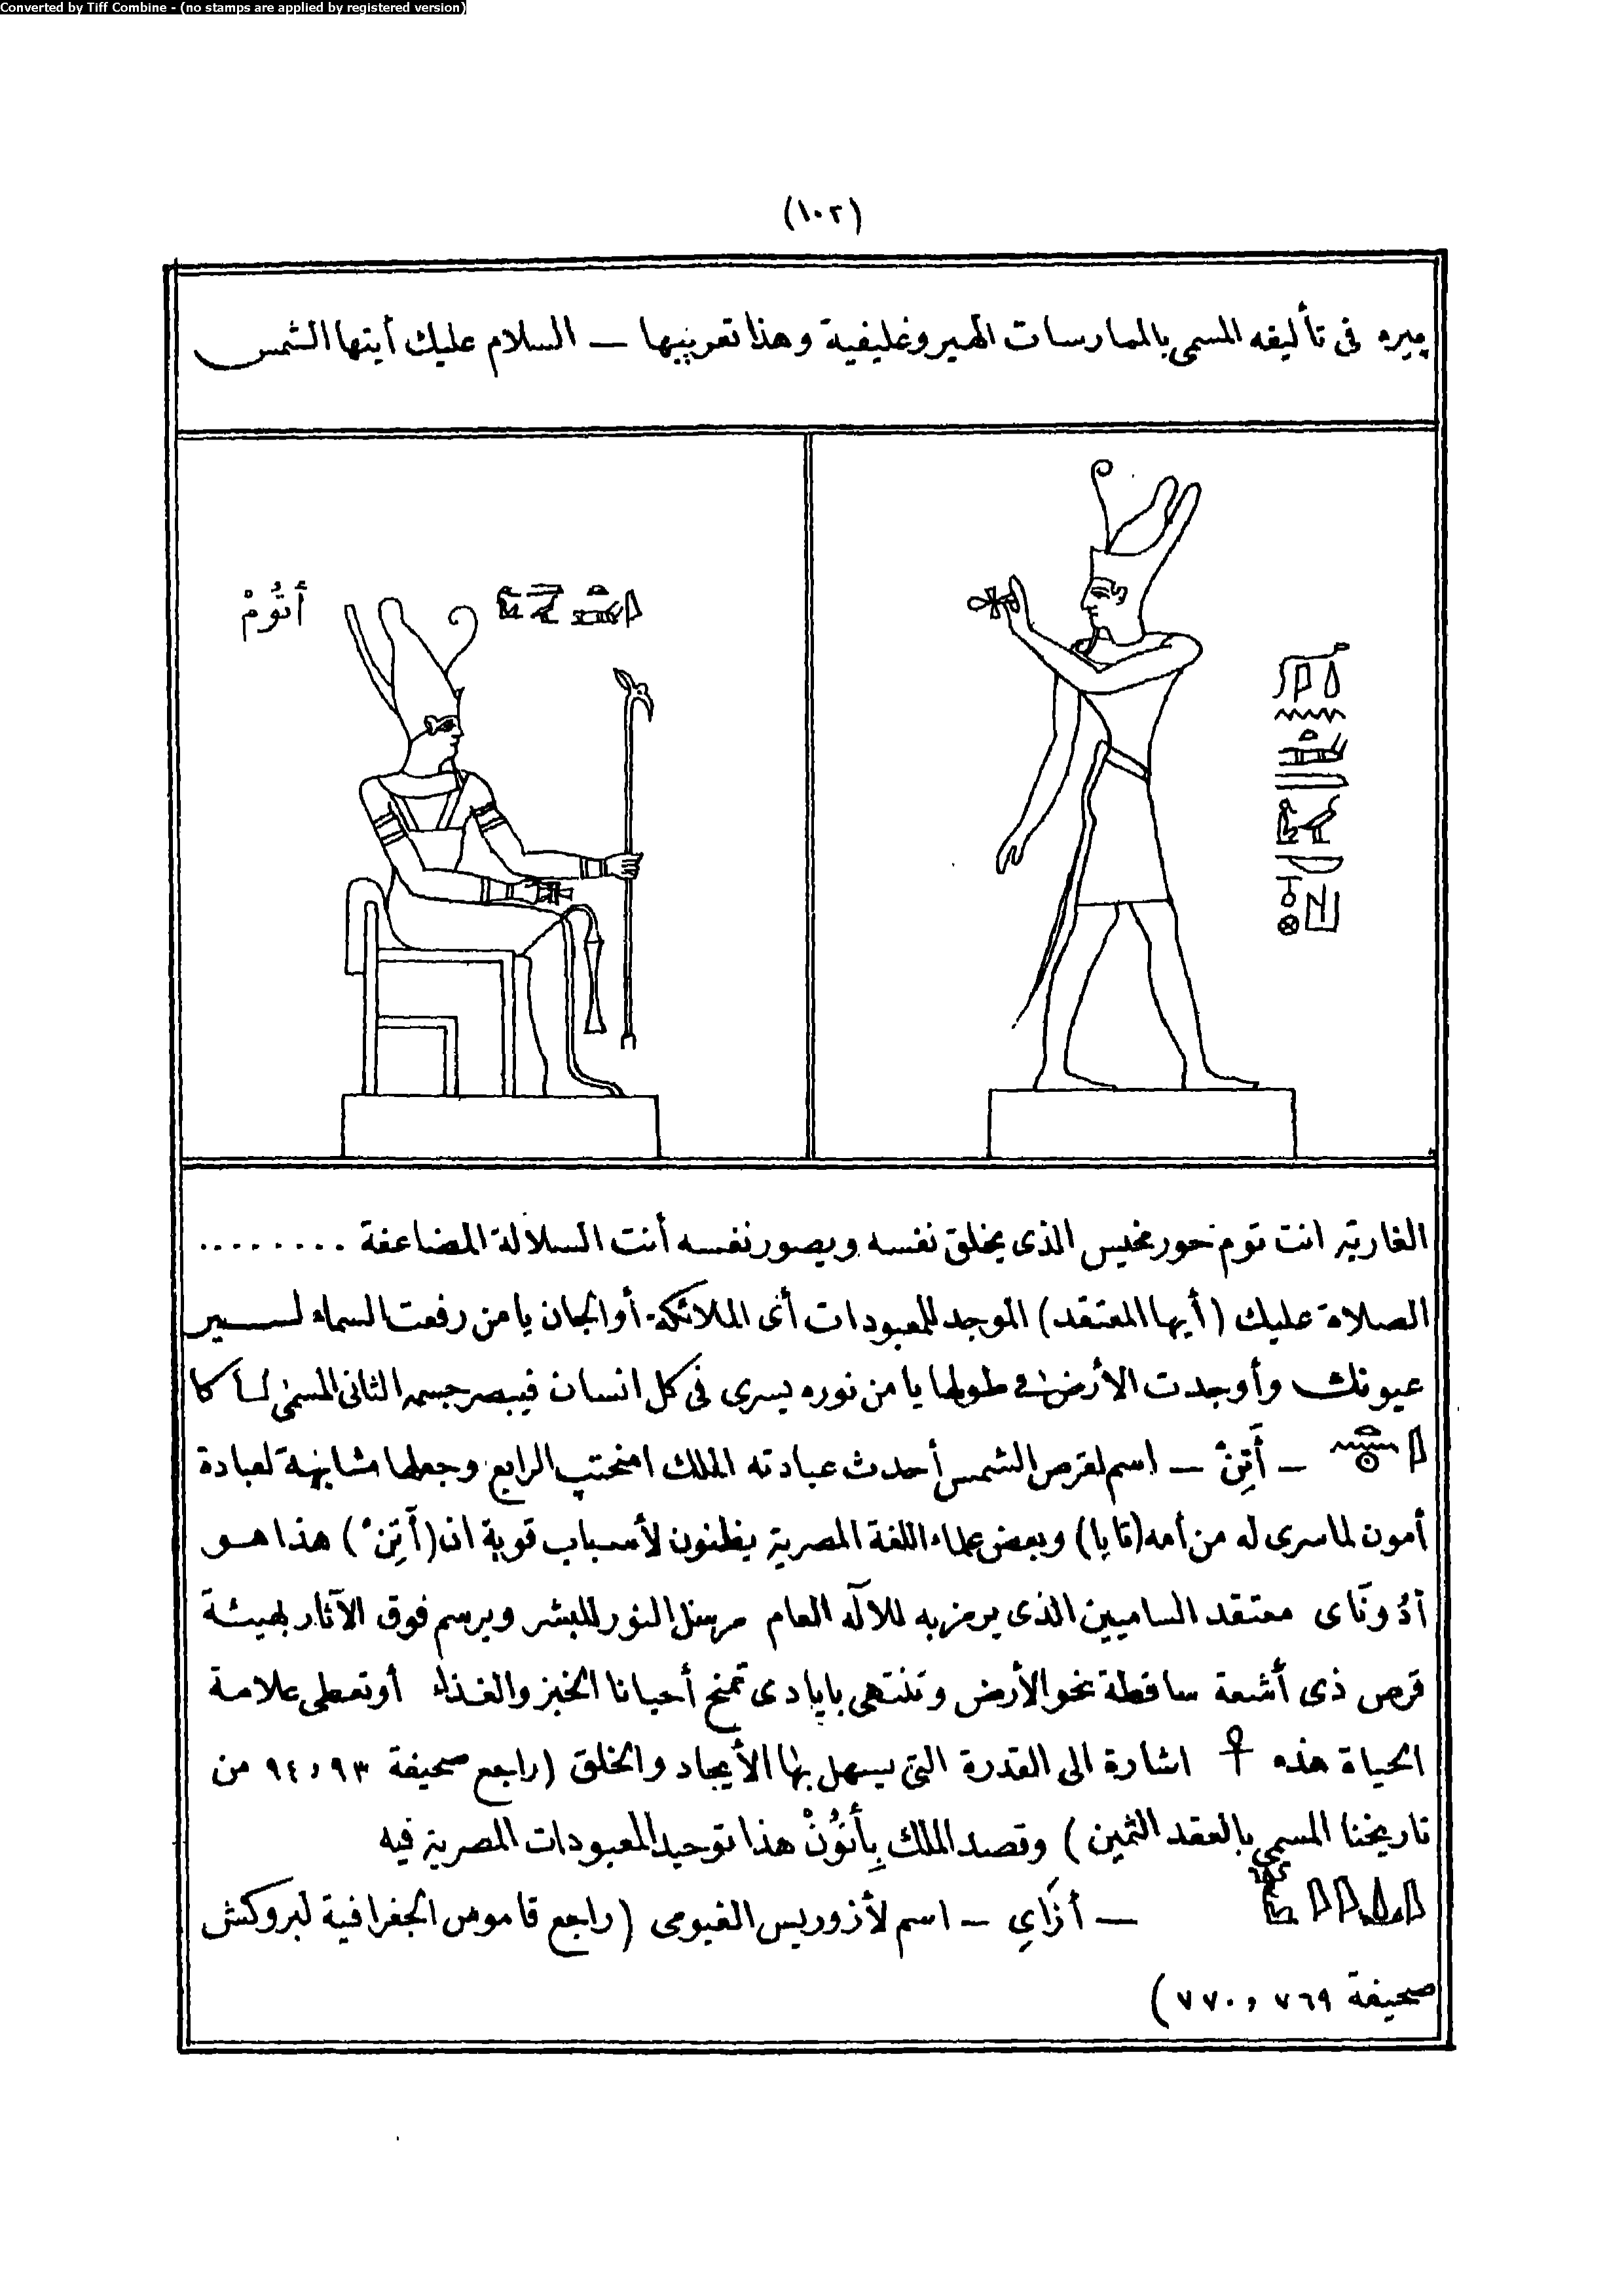 Converted by Tiff Combine - (no stamps are applied by registered version)
(١٠٢)
پيره فى تأليفه المسمى بالممارسات الهيروغليفية وهذا تعريبها — السلام عليك أيتها الشمس
أتُومْ
الغاربة انت توم حورمخيس الذى يخلق نفسه ويصور نفسه أنت السلالة المضاعفة ........
الصلاة عليك (أيها المعتقد) الموجد للمعبودات أى الملائكة أو الجان يا من رفعت السماء لسير
عيونك وأوجدت الأرض فى طولها يا من نوره يسرى فى كل انسان فيبصر جسمه الثانى المسمى كا
— أَتِنْ — اسم لقرص الشمس أحدث عبادته الملك امنحتب الرابع وجعلها مشابهة لعبادة
أمون لما سرى له من أمه (تايا) وبعض علماء اللغة المصرية يظنون لأسباب قوية ان (أَتِنْ) هذا هو
أدُونَاى معتقد الساميين الذى يرمز به للآله العام مرسل النور للبشر ويرسم فوق الآثار بهيئة
قرص ذى أشعة ساقطة نحو الأرض وتنتهى بايادى تمنح أحيانا الخبز والغذاء أو تعطى علامة
الحياة هذه ☥ اشارة الى القدرة التى يسهل بها الأيجاد والخلق (راجع صحيفة ٩٣ و ٩٤ من
تاريخنا المسمى بالعقد الثمين) وقصد الملك بِأَتُونْ هذا توحيد المعبودات المصرية فيه
— أزَاىِ — اسم لأزوريس الفيومى (راجع قاموس الجغرافية لبروكش
صحيفة ٧٦٩ و ٧٧٠)